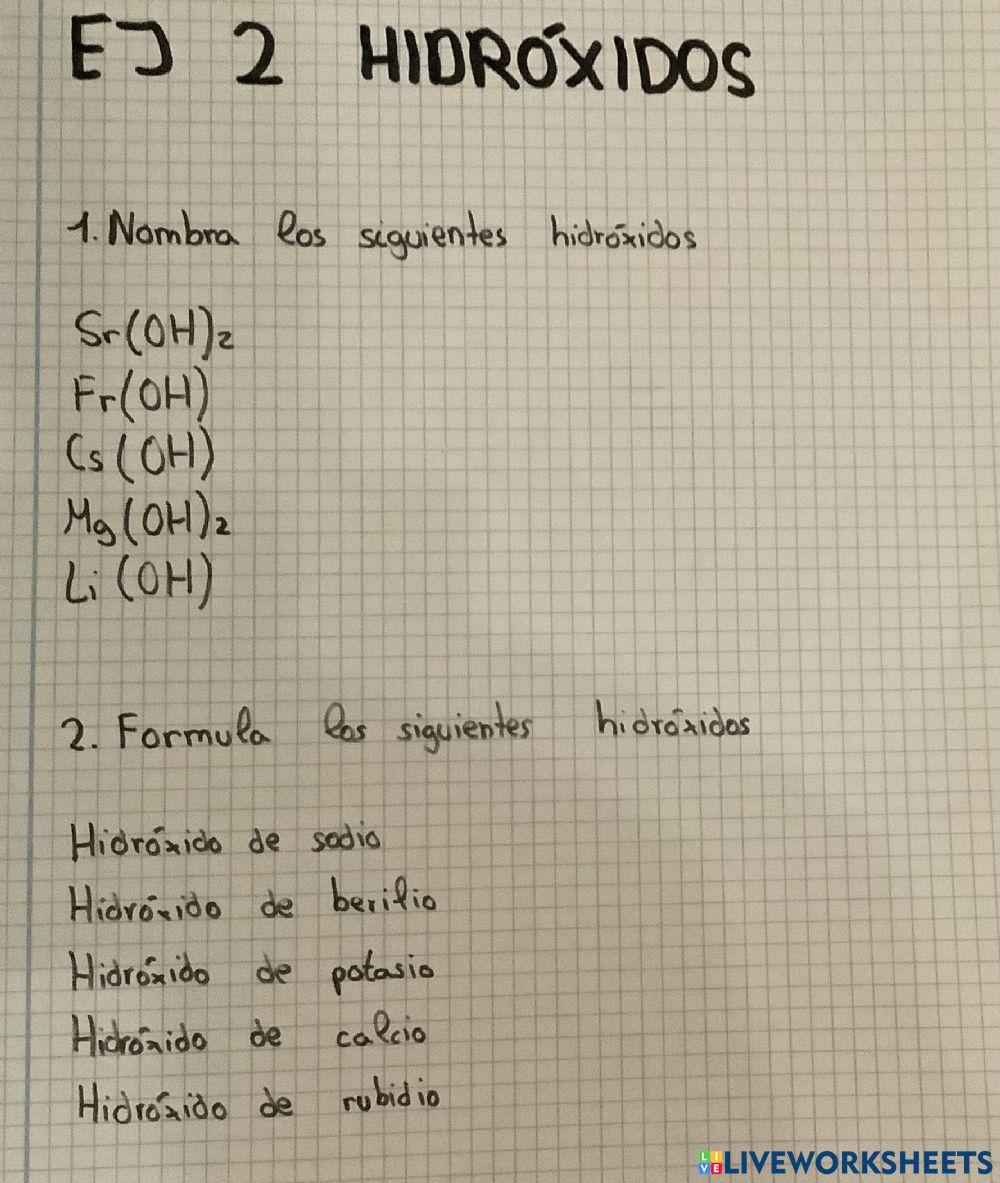 EJ 2 HIDRÓXIDOS
1. Nombra los siguientes hidróxidos
Sr(OH)2
Fr(OH)
Cs(OH)
Mg(OH)2
Li(OH)
2. Formula los siguientes hidróxidos
Hidróxido de sodio
Hidróxido de berilio
Hidróxido de potasio
Hidróxido de calcio
Hidróxido de rubidio
LIVEWORKSHEETS